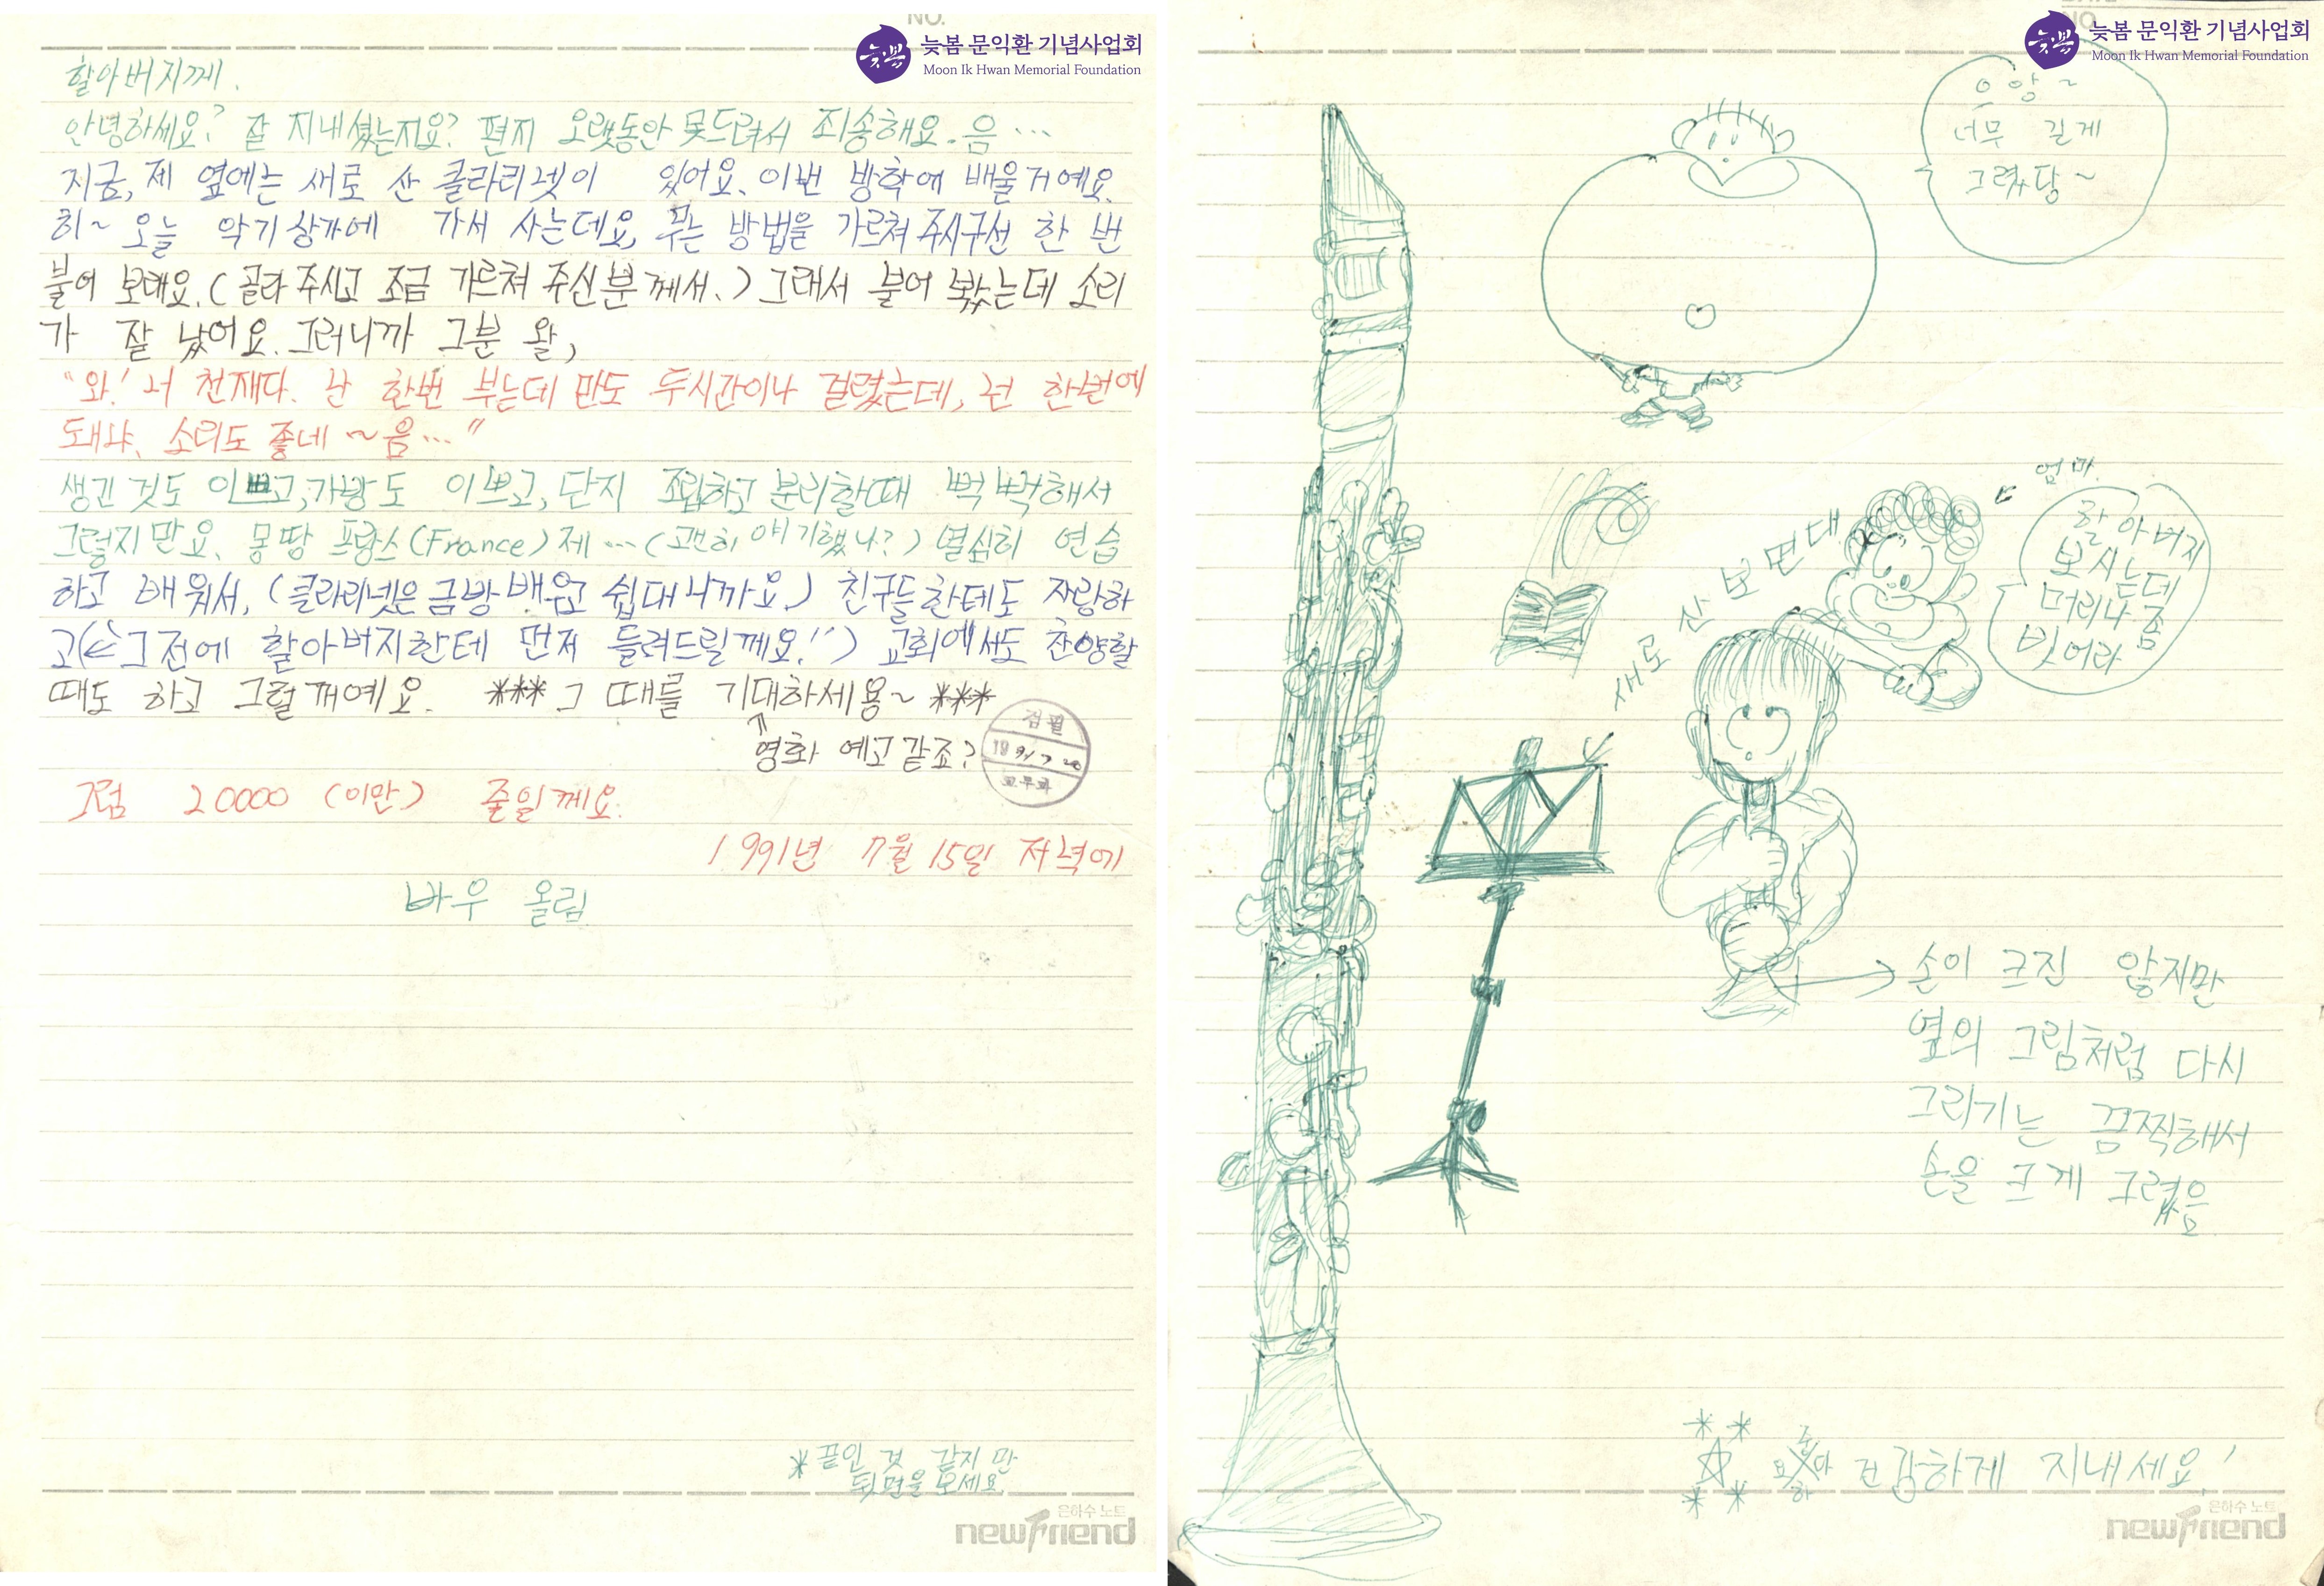 NO.
늦봄 문익환 기념사업회
Moon Ik Hwan Memorial Foundation
할아버지께.
안녕하세요? 잘 지내셨는지요? 편지 오랫동안 못드려서 죄송해요. 음…
지금, 제 옆에는 새로 산 클라리넷이 있어요. 이번 방학에 배울거예요.
히~ 오늘 악기상가에 가서 사는데요, 부는 방법을 가르쳐 주시구선 한 번
불어 보래요. (골라 주시고 조금 가르쳐 주신 분께서.) 그래서 불어 봤는데 소리
가 잘 났어요. 그러니까 그분 왈,
"와! 너 천재다. 난 한번 부는데 만도 두시간이나 걸렸는데, 넌 한번에
돼냐, 소리도 좋네 ~음…"
생긴 것도 이쁘고, 가방도 이쁘고, 단지 조립하고 분리할때 뻑뻑해서
그렇지만요. 몽땅 프랑스(France)제…(괜히 얘기했나?) 열심히 연습
하고 배워서, (클라리넷은 금방 배우고 쉽대니까요.) 친구들한테도 자랑하
고(⇐그전에 할아버지한테 먼저 들려드릴께요!!) 교회에서도 찬양할
때도 하고 그럴꺼예요. *** 그 때를 기대하세용~ ***
영화 예고 같죠?
검필
1991. 7. 20
교무과
그럼 20000 (이만) 줄일께요.
1991년 7월 15일 저녁에
바우 올림
*끝인 것 같지만
뒷면을 보세요.
은하수 노트
newFriend
NO.
늦봄 문익환 기념사업회
Moon Ik Hwan Memorial Foundation
으앙~
너무 길게
그렸당~
엄마.
할아버지
보시는데
머리나 좀
빗어라
새로 산 보면대
손이 크진 않지만
옆의 그림처럼 다시
그리기는 끔찍해서
손을 크게 그렸음
건강하게 지내세요!
은하수 노트
newFriend